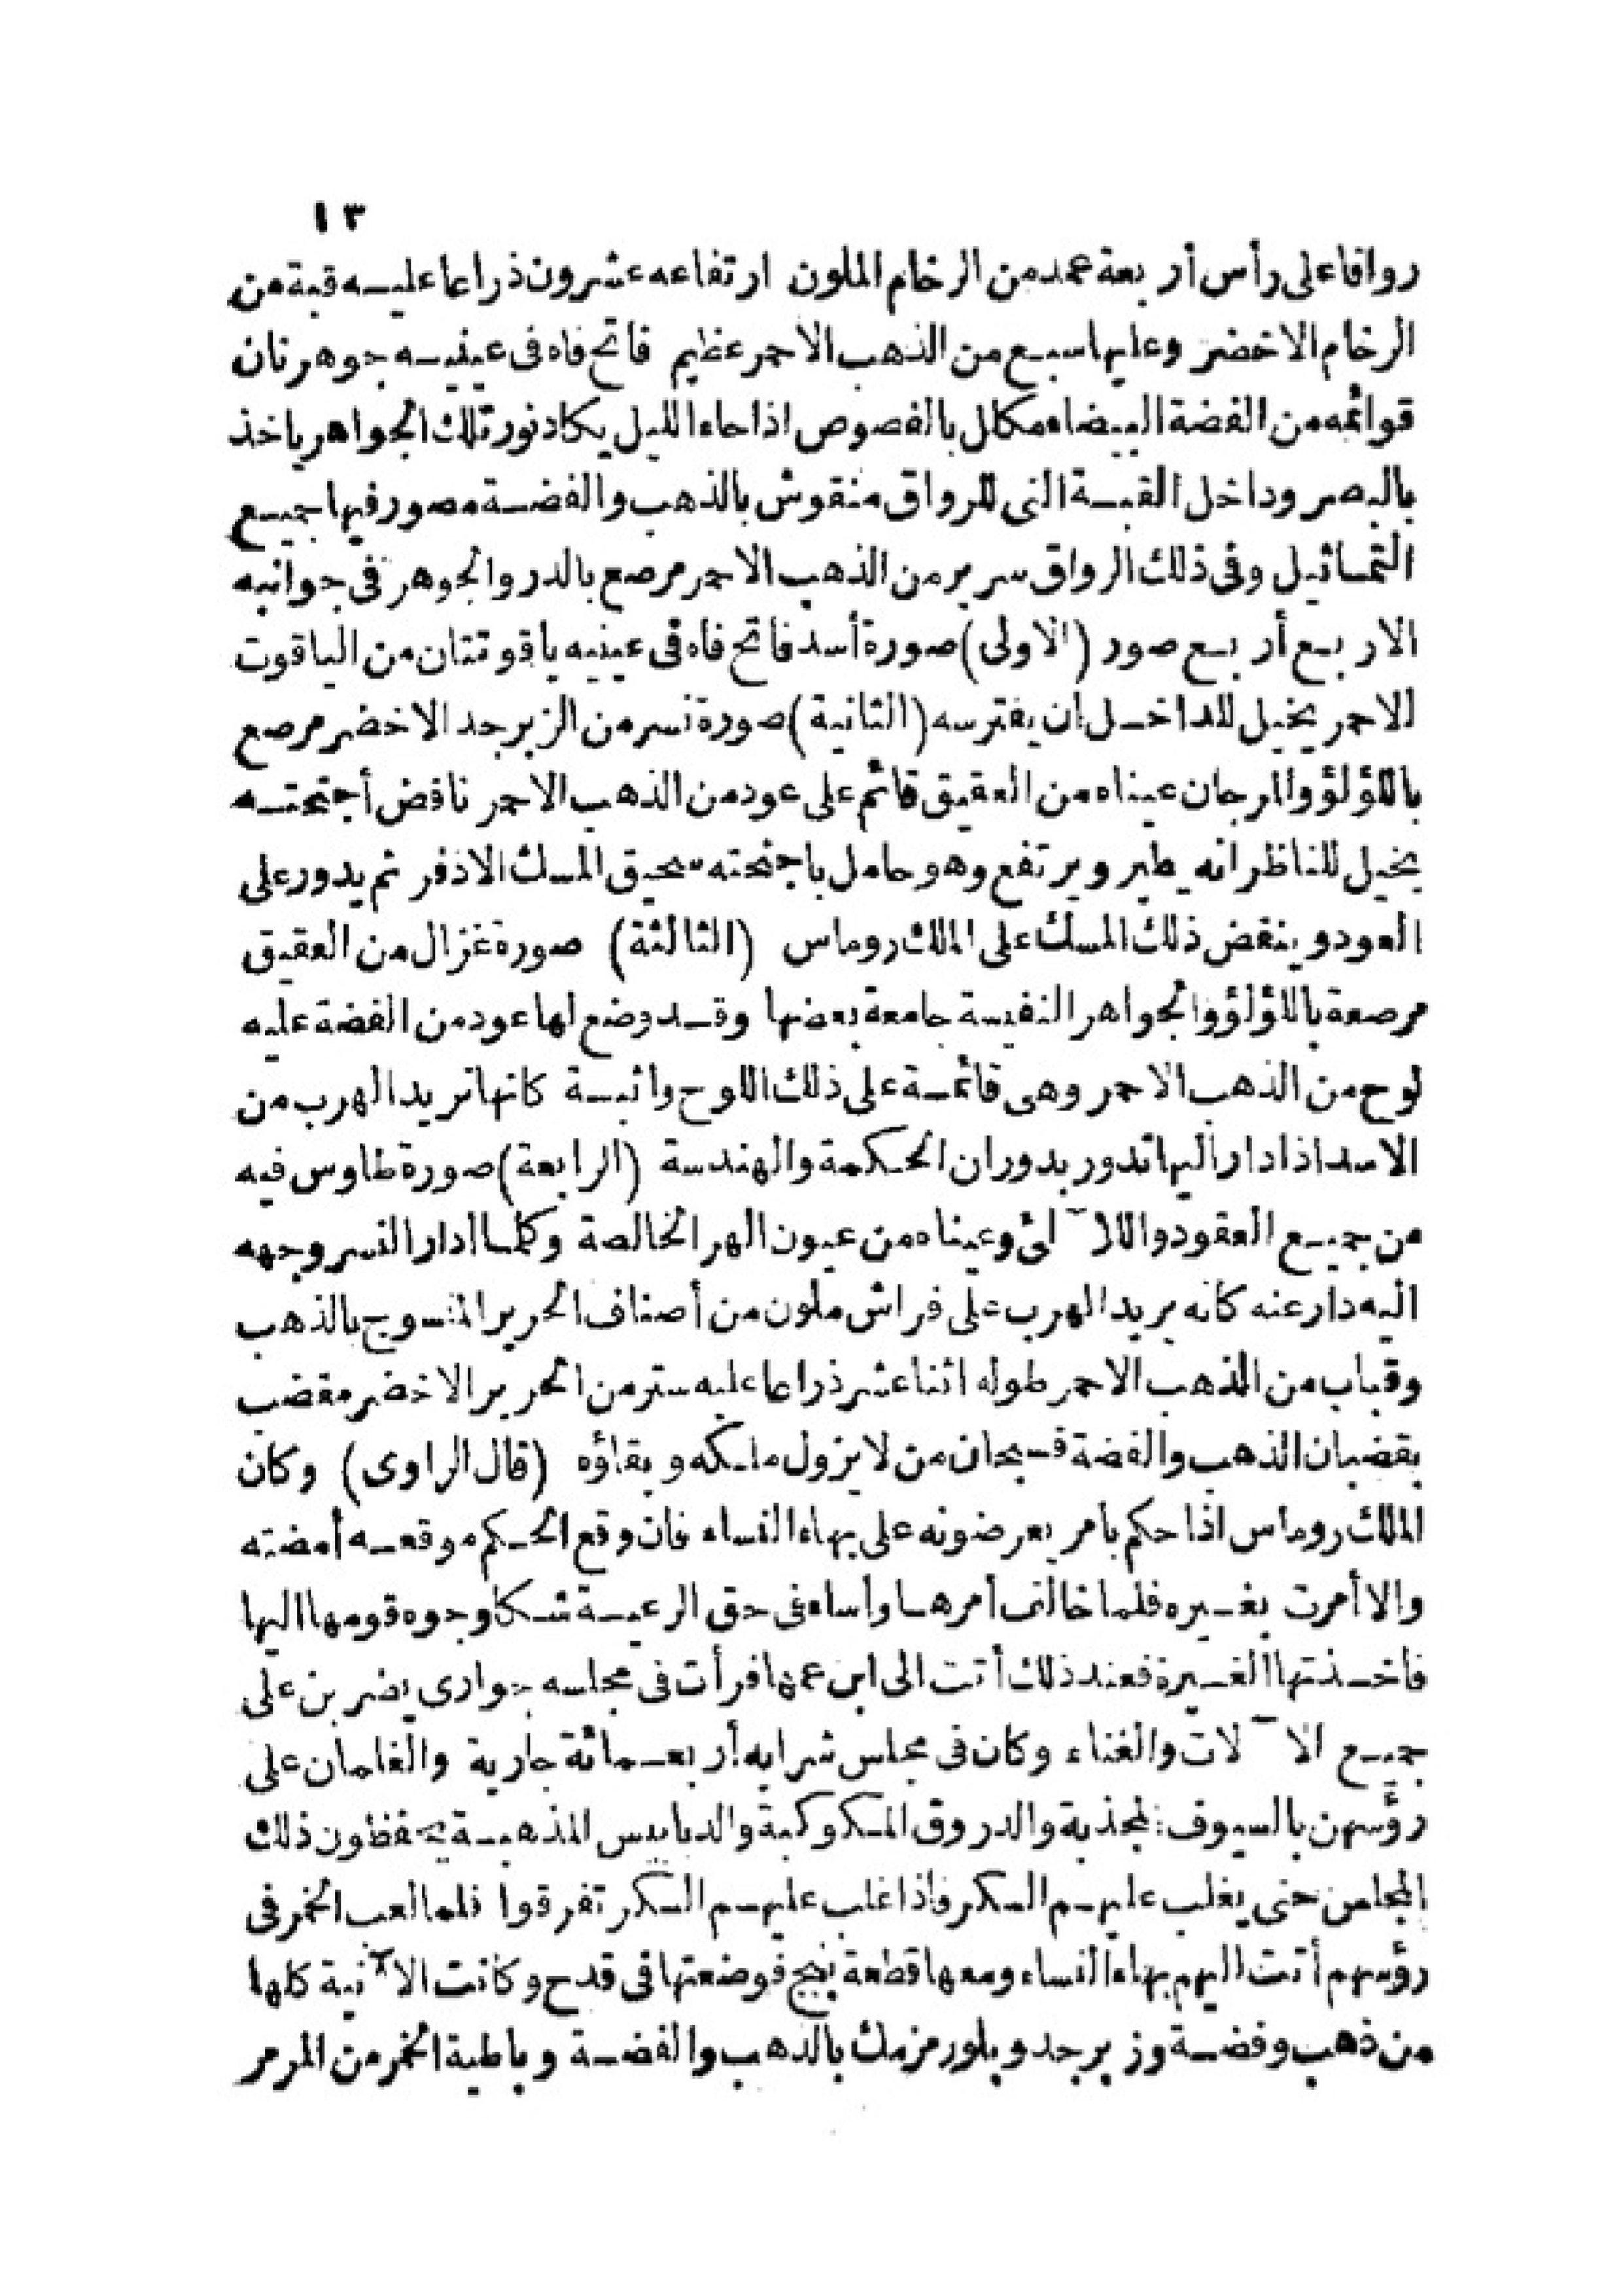 ١٣
رواقا على رأس أربعة عمد من الرخام الملون ارتفاعه عشرون ذراعا عليه قبة من
الرخام الاخضر وعليها سبع من الذهب الاحمر عظيم فاتح فاه فى عينيه جوهرتان
قوائمه من الفضة البيضاء مكلل بالفصوص اذا جاء الليل يكاد نور تلك الجواهر ياخذ
بالبصر وداخل القبة التى للرواق منقوش بالذهب والفضة مصور فيها جميع
التماثيل وفى ذلك الرواق سرير من الذهب الاحمر مرصع بالدر والجوهر فى جوانبه
الاربع أربع صور (الاولى) صورة أسد فاتح فاه فى عينيه ياقوتتان من الياقوت
الاحمر يخيل للداخل ان يفترسه (الثانية) صورة نسر من الزبرجد الاخضر مرصع
باللؤلؤ والمرجان عيناه من العقيق قائم على عود من الذهب الاحمر نافض أجنحته
يخيل للناظر انه يطير ويرتفع وهو حامل باجنحته سحيق المسك الاذفر ثم يدور على
العود وينفض ذلك المسك على الملك روماس (الثالثة) صورة غزال من العقيق
مرصعة باللؤلؤ والجواهر النفيسة جامعة بعضها وقد وضع لها عود من الفضة عليه
لوح من الذهب الاحمر وهى قائمة على ذلك اللوح واثبة كانها تريد الهرب من
الاسد اذا دار اليها تدور بدوران الحكمة والهندسة (الرابعة) صورة طاوس فيه
من جميع العقود واللآلئ وعيناه من عيون الهر الخالصة وكلما ادار النسر وجهه
اليه دار عنه كانه يريد الهرب على فراش ملون من أصناف الحرير المنسوج بالذهب
وقباب من الذهب الاحمر طوله اثنا عشر ذراعا عليه ستر من الحرير الاخضر مقضب
بقضبان الذهب والفضة فسبحان من لا يزول ملكه وبقاؤه (قال الراوى) وكان
الملك روماس اذا حكم بأمر يعرضونه على بهاء النساء فان وقع الحكم موقعه أمضته
والا أمرت بغيره فلما خالف أمرها وأساء فى حق الرعية شكا وجوه قومها اليها
فاخذتها الغيرة فعند ذلك أتت الى ابن عمها فرأت فى مجلسه جوارى يضربن على
جميع الآلات والغناء وكان فى مجلس شرابه أربعمائة جارية والغلمان على
رؤسهن بالسيوف المجذبة والدروق المكوكبة والدبابيس المذهبة يحفظون ذلك
المجلس حتى يغلب عليهم السكر فاذا غلب عليهم السكر تفرقوا فلما لعب الخمر فى
رؤسهم أتت اليهم بهاء النساء ومعها قطعة بنج فوضعتها فى قدح وكانت الآنية كلها
من ذهب وفضة وزبرجد وبلور مزمك بالذهب والفضة وباطية الخمر من المرمر